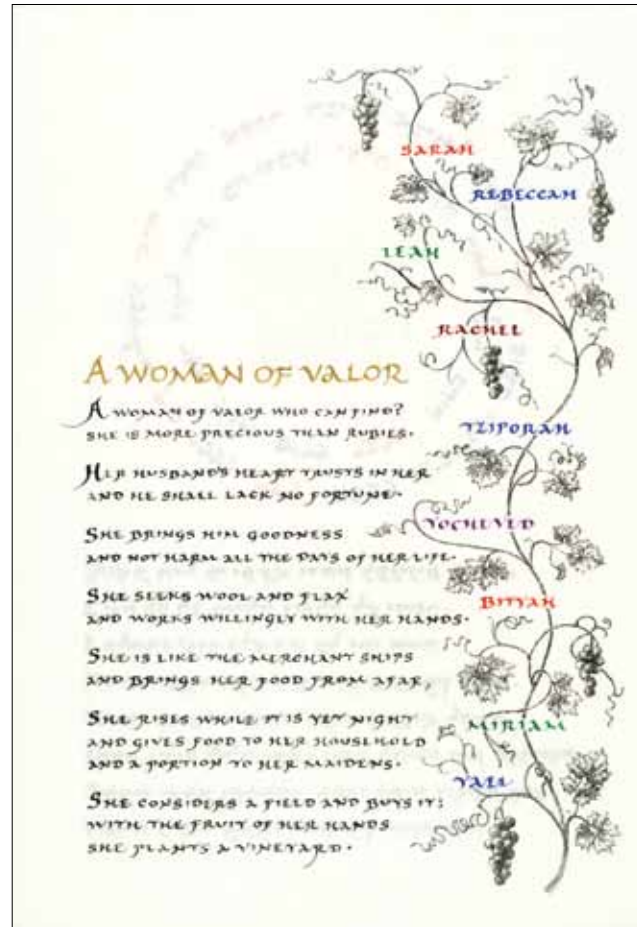 SARAH
REBECCAH
LEAH
RACHEL
A WOMAN OF VALOR
A WOMAN OF VALOR WHO CAN FIND?
SHE IS MORE PRECIOUS THAN RUBIES.
TZIPORAH
HER HUSBAND'S HEART TRUSTS IN HER
AND HE SHALL LACK NO FORTUNE.
YOCHEVED
SHE BRINGS HIM GOODNESS
AND NOT HARM ALL THE DAYS OF HER LIFE.
BITYAH
SHE SEEKS WOOL AND FLAX
AND WORKS WILLINGLY WITH HER HANDS.
SHE IS LIKE THE MERCHANT SHIPS
AND BRINGS HER FOOD FROM AFAR,
MIRIAM
SHE RISES WHILE IT IS YET NIGHT
AND GIVES FOOD TO HER HOUSEHOLD
AND A PORTION TO HER MAIDENS.
YAEL
SHE CONSIDERS A FIELD AND BUYS IT:
WITH THE FRUIT OF HER HANDS
SHE PLANTS A VINEYARD.